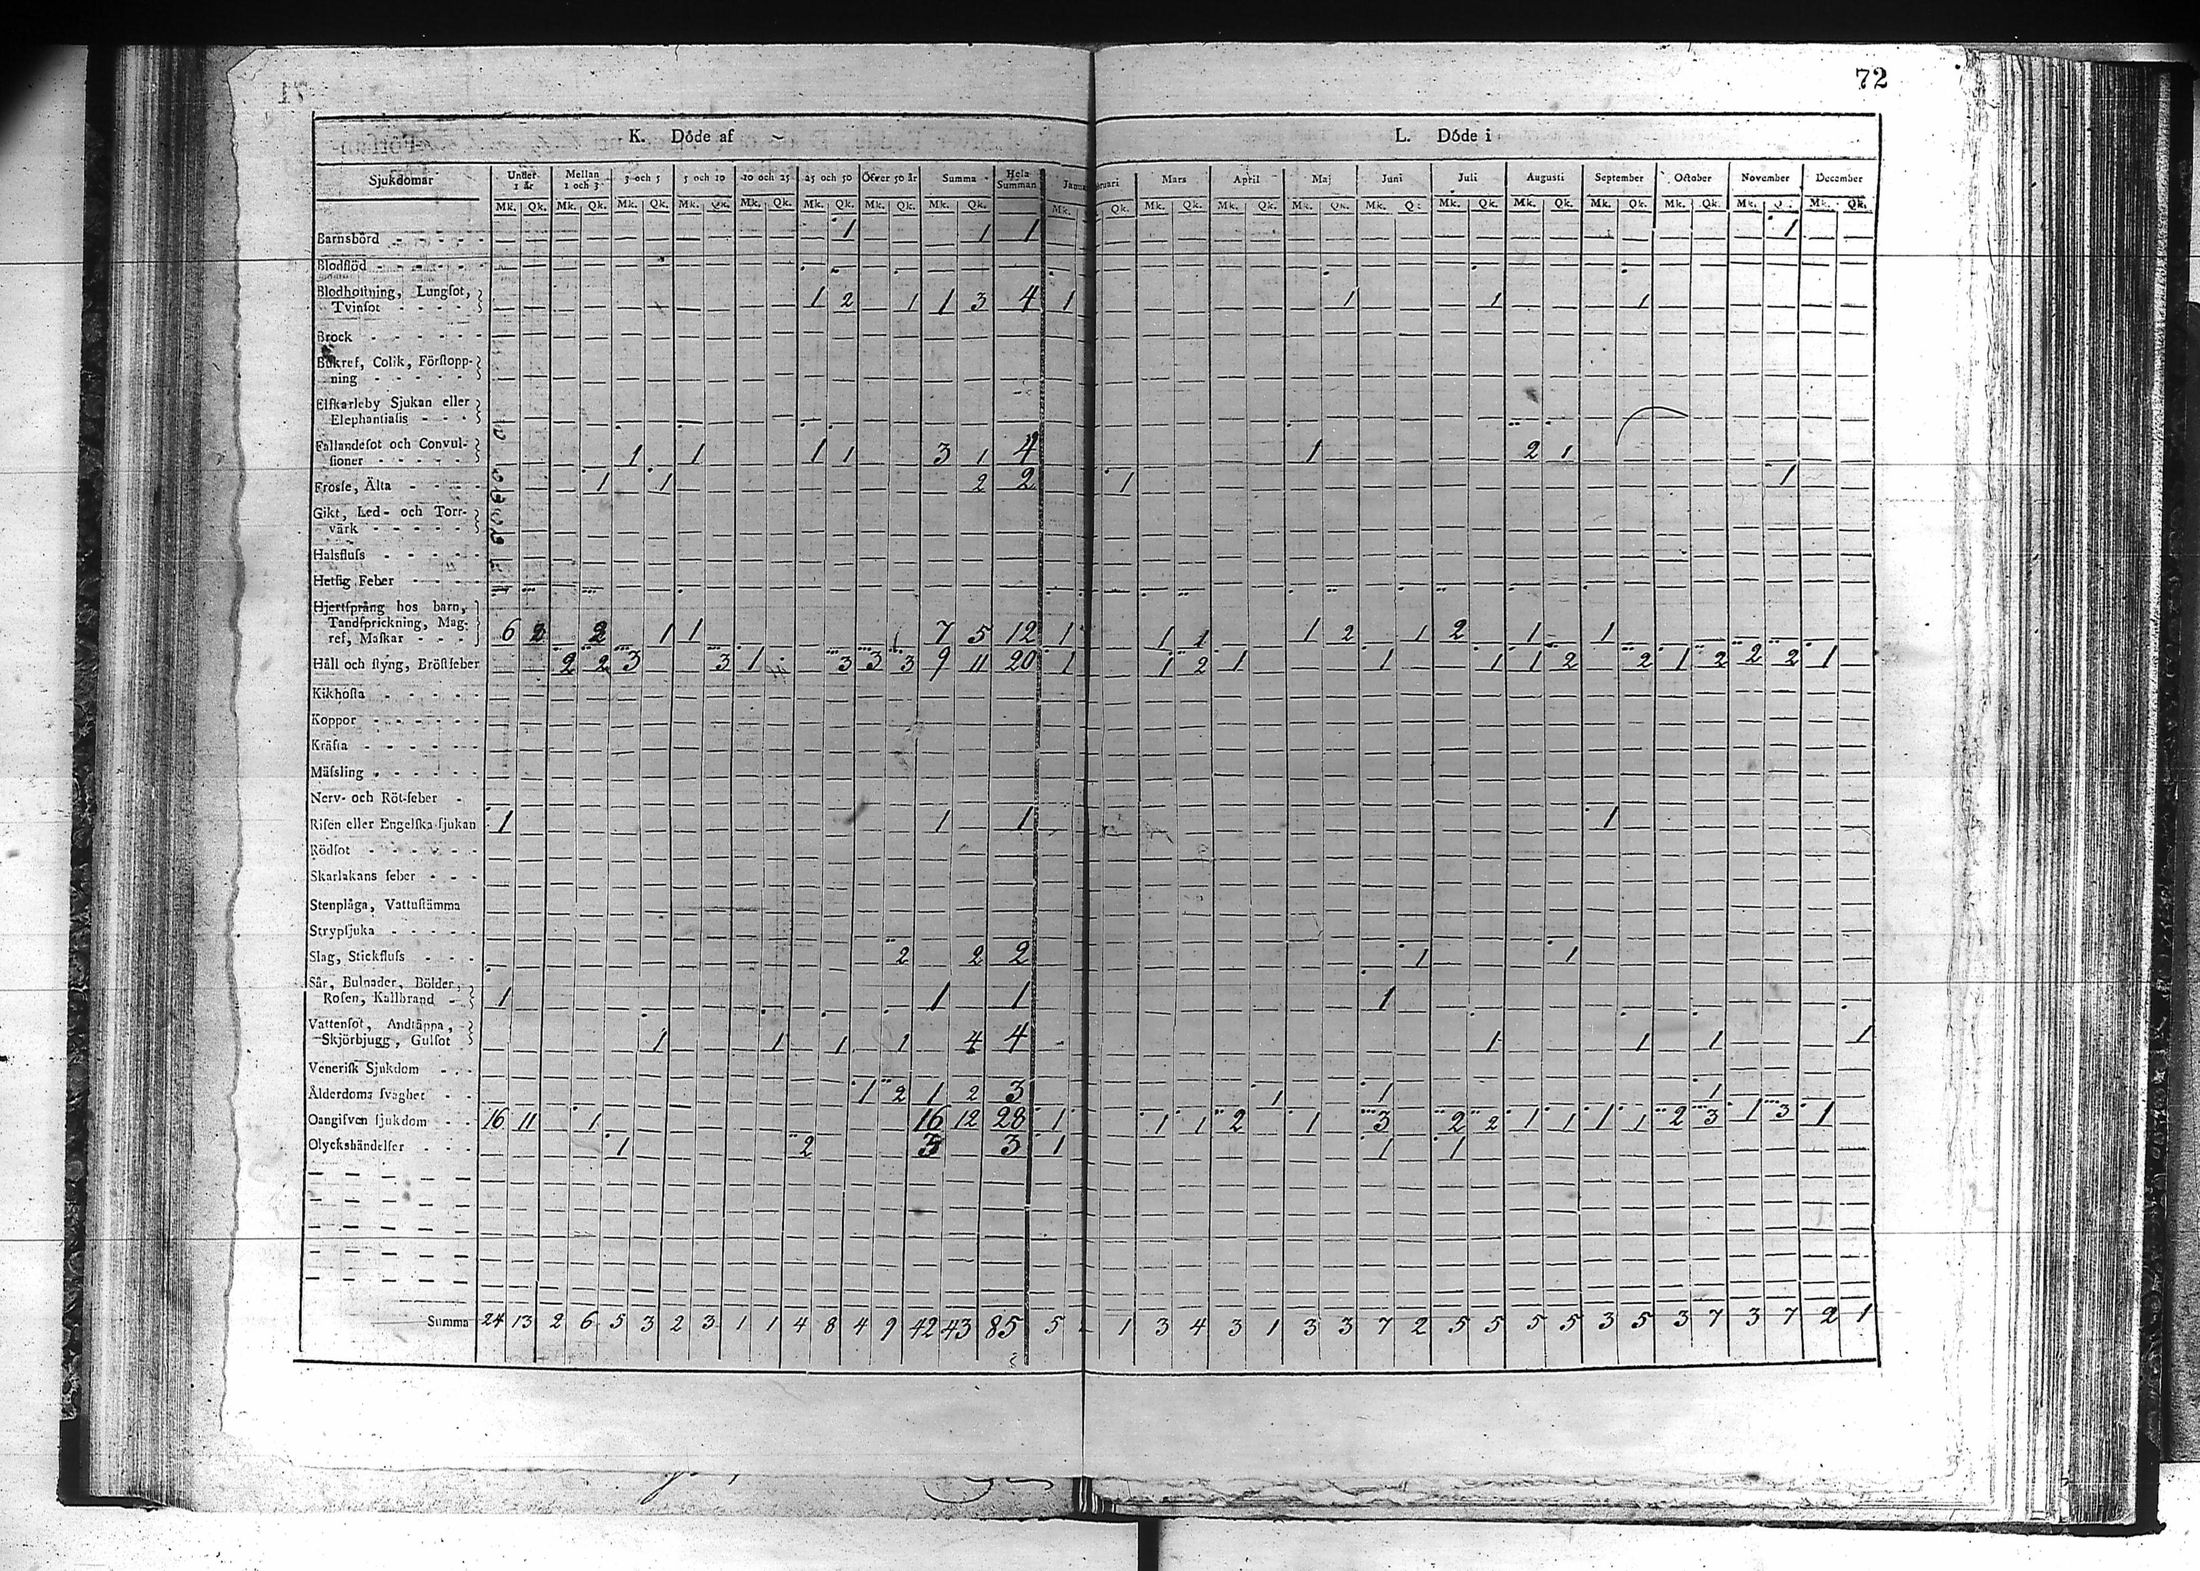 71
72
K. Döde af
L. Döde i
Sjukdomar Under 1 år Mellan 1 och 3 3 och 5 5 och 10 10 och 25 25 och 50 Öfver 50 år Summa Hela Summan Janua ruari Mars April Maj Juni Juli Augusti September October November December
Mk. Qk. Mk. Qk. Mk. Qk. Mk. Qk. Mk. Qk. Mk. Qk. Mk. Qk. Mk. Qk. Mk. Qk. Mk. Qk. Mk. Qk. Mk. Qk. Mk. Q: Mk. Qk. Mk. Qk. Mk. Qk. Mk. Qk. Mk. Q: Mk. Qk.
Barnsbörd 1 1 1 1
Blodflöd
Blodhostning, Lungsot,
Tvinsot 1 2 1 1 3 4 1 1 1 1
Brock
Bukref, Colik, Förstopp-
ning
Elfkarleby Sjukan eller
Elephantiasis
Fallandesot och Convul-
sioner 1 1 1 1 3 1 4 1 2 1
Frosse, Älta 1 1 2 2 1 1
Gikt, Led- och Torr-
värk
Halsfluss
Hetsig Feber
Hjertsprång hos barn,
Tandsprickning, Mag-
ref, Maskar 6 2 2 1 1 7 5 12 1 1 1 1 2 1 2 1 1
Håll och styng, Bröstfeber 2 2 3 3 1 3 3 3 9 11 20 1 1 2 1 1 1 1 2 2 1 2 2 2 1
Kikhosta
Koppor
Kräfta
Mässling
Nerv- och Röt-feber
Risen eller Engelska sjukan 1 1 1 1
Rödsot
Skarlakans feber
Stenplåga, Vattustämma
Strypsjuka
Slag, Stickfluss 2 2 2 1 1
Sår, Bulnader, Bölder,
Rosen, Kallbrand 1 1 1 1
Vattensot, Andtäppa,
Skjörbjugg, Gulsot 1 1 1 1 4 4 1 1 1 1
Venerisk Sjukdom
Ålderdoms svaghet 1 2 1 2 3 1 1 1
Oangifven sjukdom 16 11 1 16 12 28 1 1 1 2 1 3 2 2 1 1 1 1 2 3 1 3 1
Olyckshändelser 1 2 3 3 1 1 1
Summa 24 13 2 6 5 3 2 3 1 1 4 8 4 9 42 43 85 5 1 3 4 3 1 3 3 7 2 5 5 5 5 3 5 3 7 3 7 2 1